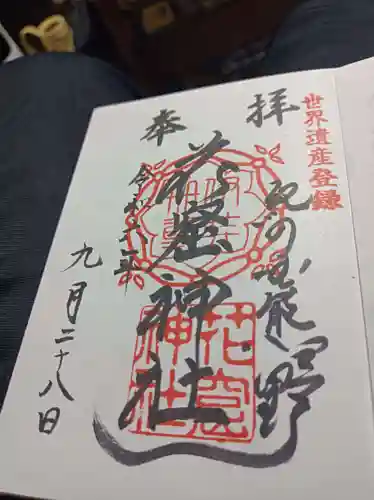 世界遺産登録
奉拝
紀州熊野
花窟神社
令和六年
九月二十八日
花窟神社